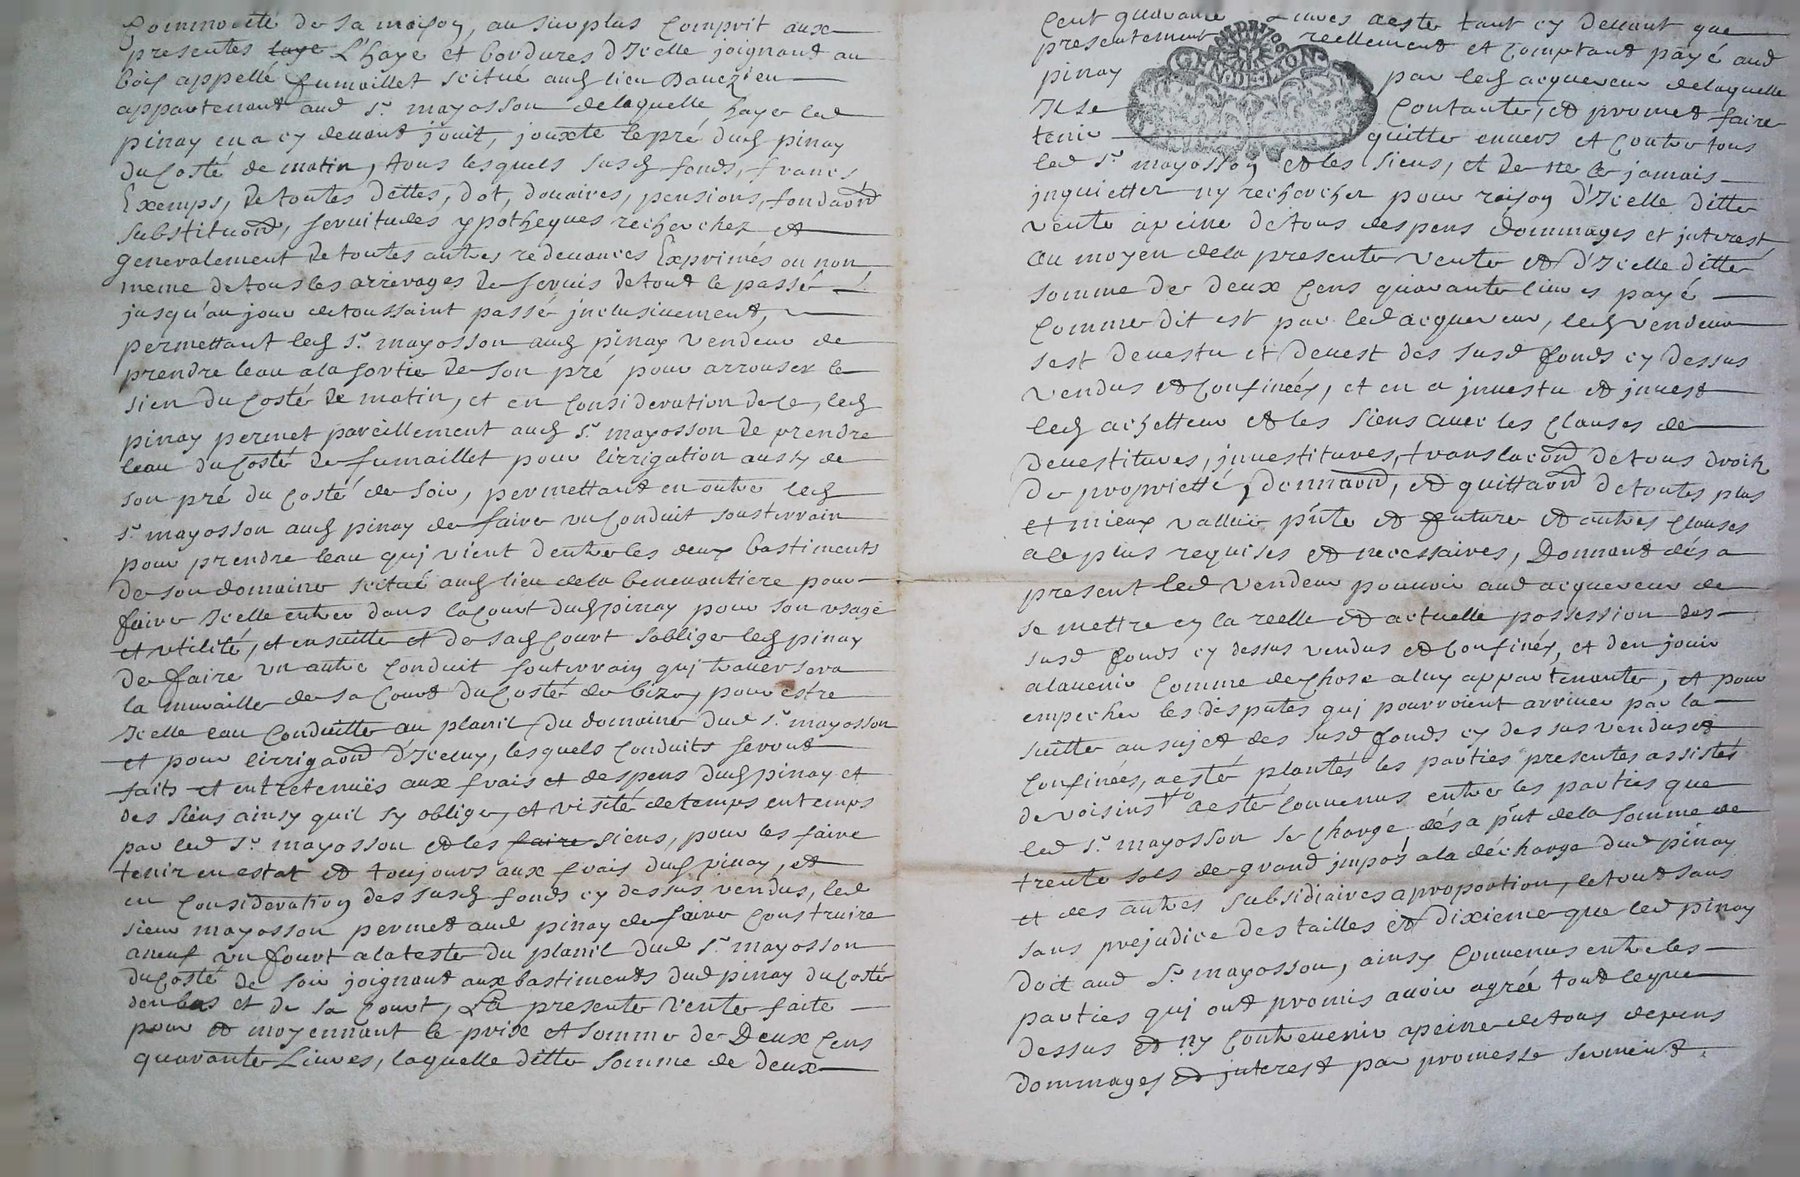 Commodité de sa maison, au surplus Comprit aux
presentes laye L'haye et bordures d'Icelle joignant au
bois appellé fumaillet scitué aud lieu Dauczieu
appartenant aud Sr. mayosson de laquelle haye led
pinay en a cy devant jouit, jouxte le pré dud pinay
du Costé de matin, tous lesquels susd fonds, francs
Exemps, de toutes dettes, dot, douaires, pensions, fondaôns
substituôns, servitudes ypotheques recherches et
generalement de toutes autres redevances Exprimés ou non
meme de tous les arrerages de servis de tout le passé
jusqu'au jour de toussaint passé jnclusivement,
permettant led Sr. mayosson aud pinay vendeur de
prendre leau a la sortie de son pré pour arrouser le
sien du Costé de matin, et en Consideration de Ce, led
pinay permet pareillement aud Sr. mayosson de prendre
leau du Costé de fumaillet pour lirrigation aussy de
son pré du Costé de soir, permettant en outre led
Sr. mayosson aud pinay de faire un Conduit sousterrain
pour prendre leau quj vient dentre les deux bastiments
de son domaine scitué aud lieu de la benevantiere pour
faire Icelle entrer dans la Court dud pinay pour son usage
et utilité, et ensuitte et de sad Court soblige led pinay
de faire un autre Conduit souterrain quj traversera
la muraille de sa Court du Costé de bize, pour estre
Icelle eau Conduitte au planil du domaine dud Sr. mayosson
et pour lirrigaôn d'Iceluy, lesquels Conduits seront
faits et entretenuës aux frais et despens dud pinay et
des siens ainsy quil sy oblige, et visité de temps en temps
par led Sr. mayosson et les faire siens, pour les faire
tenir en estat et toujours aux frais dud pinay, et
en Consideration des susd fonds cy dessus vendus, led
sieur mayosson permet aud pinay de faire Construire
a neuf un fourt a la teste du planil dud Sr. mayosson
du Costé de soir joignant aux bastiments dud pinay du Costé
den bas et de sa Court, La presente vente faite
pour et moyennant le prix et somme de Deux Cens
quarante Livres, laquelle ditte somme de deux
Cent quarante Livres a esté tant cy Devant que
presentement reellement et Comptant payé aud
GEN. DE LION
pinay par led acquereur de laquelle
Il se Contante, et promet faire
tenir quitte envers et Contre tous
led Sr. mayosson et les siens, et de ne le jamais
jnquietter ny rechercher pour raison d'Icelle ditte
vente a peine de tous despens dommages et jnterest
au moyen de la presente vente et d'Icelle ditte
somme de deux Cens quarante livres payé
Comme dit est par led acquereur, led vendeur
sest devestu et Devest des susd fonds cy dessus
vendus et Confinées, et en a jnvestu et jnvest
led achetteur et les siens avec les Clauses de
devestitures, jnvestitures, translaôn de tous droits
de proprietté, donnaôn, et quittaôn de toutes plus
et mieux vallue pnte et future et autres Clauses
a Ce plus requises et necessaires, Donnant dés a
present led vendeur pouvoir aud acquereur de
se mettre en la reelle et actuelle possession des
susd fonds cy dessus vendus et Confinés, et den jouir
a lavenir Comme de Chose a luy appartenante, et pour
empecher les desputes quj pourroient arriver par la
suitte au sujet des susd fonds cy dessus vendus et
Confinées, a esté plantés les parties presentes assistés
de voisins a esté Convenus entre les parties que
led Sr. mayosson se Charge dés a pnt de la somme de
trente sols de grand jmpos a la décharge dud pinay
et des autres subsidiaires a proportion, le tout sans
sans prejudice des tailles et dixieme que led pinay
doit aud Sr. mayosson, ainsy Convenus entre les
parties quj ont promis avoir agreé tout le que
dessus et ny Contrevenir a peine de tous depens
dommages et jnterest par promesse serment